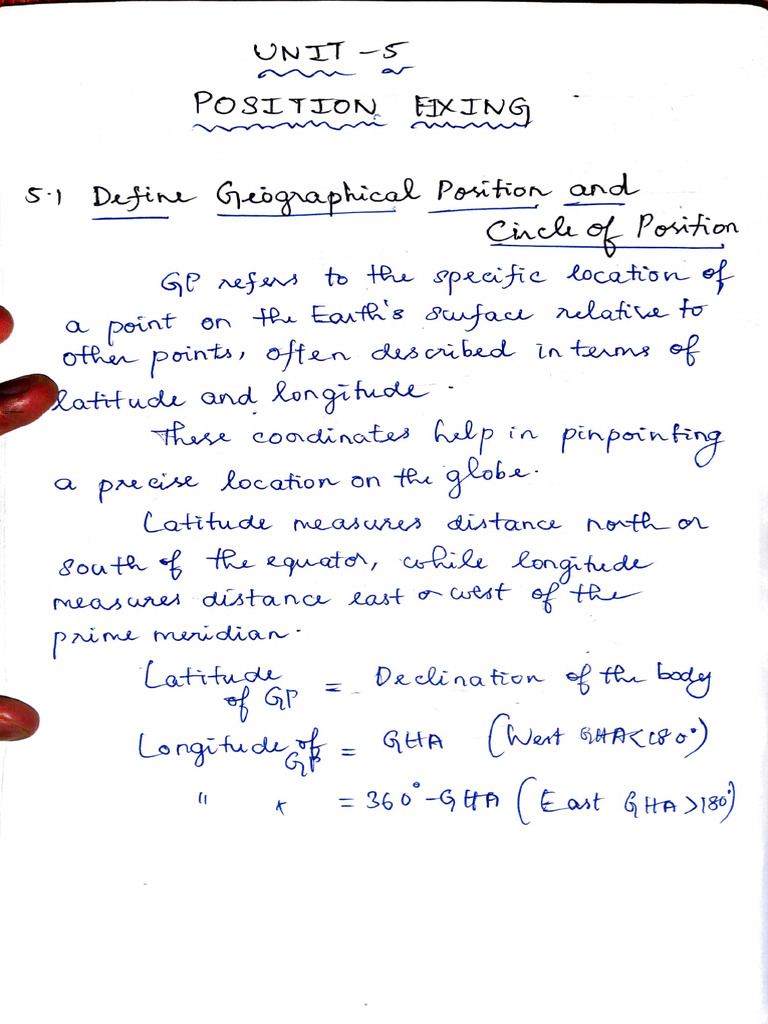 UNIT - 5
POSITION FIXING
5.1 Define Geographical Position and
Circle of Position
GP refers to the specific location of
a point on the Earth's surface relative to
other points, often described in terms of
latitude and longitude.
These coordinates help in pinpointing
a precise location on the globe.
Latitude measures distance north or
south of the equator, while longitude
measures distance east or west of the
prime meridian.
Latitude of GP = Declination of the body
Longitude of GP = GHA (West GHA<180°)
" " = 360° - GHA (East GHA >180°)